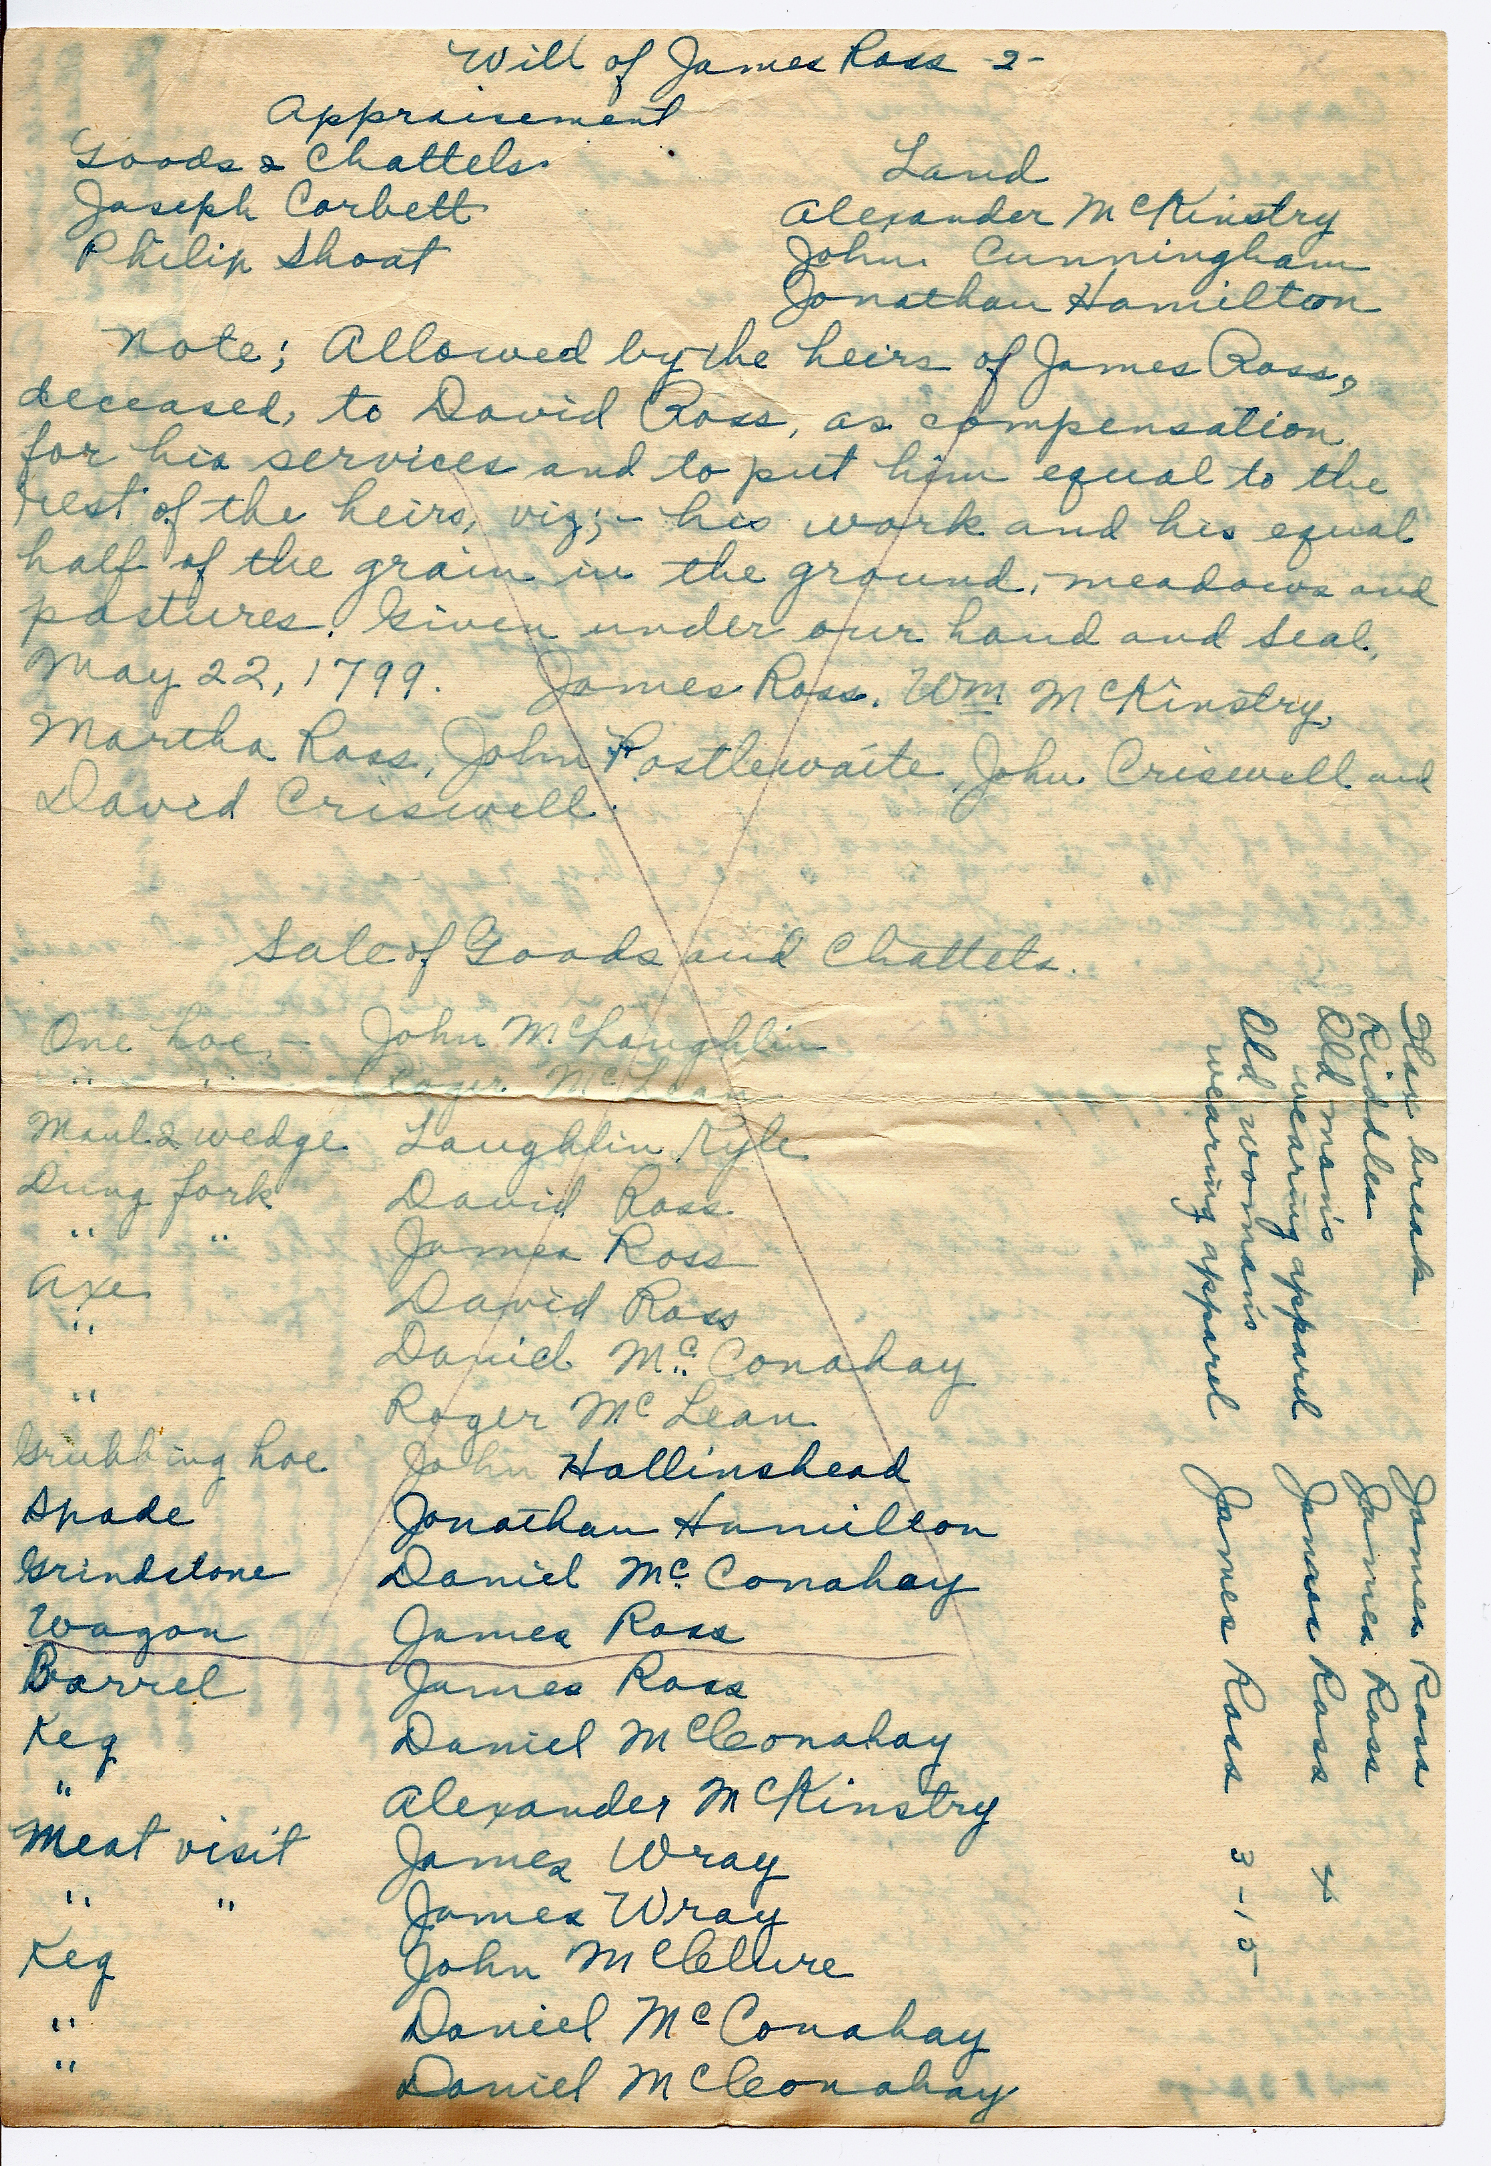 Will of James Ross -2-
Appraisement
Goods & Chattels.
Joseph Corbett
Philip Shoat
Land
Alexander McKinstry
John Cunningham
Jonathan Hamilton
Note; Allowed by the heirs of James Ross,
deceased, to David Ross, as compensation
for his services and to put him equal to the
rest of the heirs, viz;- his work and his equal
half of the grain in the ground, meadows and
pastures. Given under our hand and seal,
May 22, 1799. James Ross. Wm McKinstry,
Martha Ross, John Postlewaite, John Criswell and
David Criswell.
Sale of Goods and Chattels.
One hoe, - John McLaughlin
" " Roger McLean
Maul & wedge Laughlin Kyle
Dung fork David Ross
" " James Ross
Axe David Ross
" Daniel Mc Conahay
" Roger McLean
Grubbing hoe John Hollinshead
Spade Jonathan Hamilton
Grindstone Daniel Mc Conahay
Wagon James Ross
Barrel James Ross
Keg Daniel McConahay
" Alexander McKinstry
Meat visit James Wray
" " James Wray
Keg John McClure
" Daniel McConahay
" Daniel McConahay
Flax break James Ross
Riddles James Ross
Old man's
wearing apparel James Ross 4
Old woman's
wearing apparel James Ross 3-15